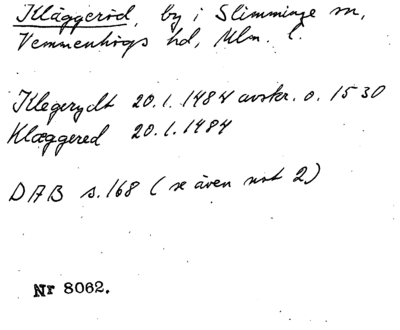 Kläggeröd, by i Slimminge sn,
Vemmenhögs hd, Mlm. l.
Klegerydt 20.1.1484 avskr. o. 1530
Klæggered 20.1.1484
DAB s.168 (se även not 2)
Nr 8062.